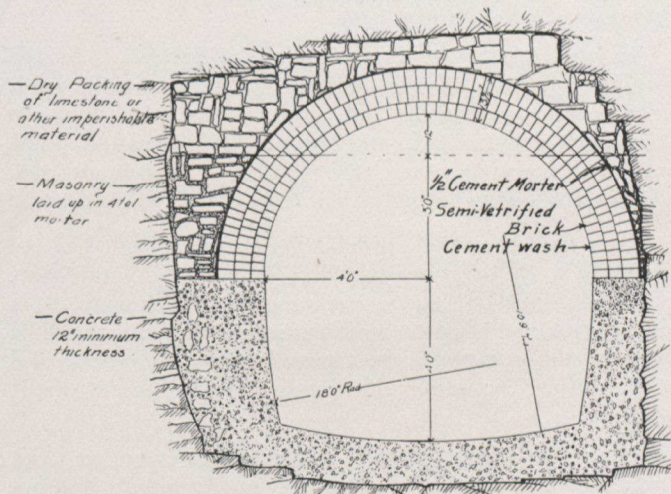 Dry Packing
of limestone or
other imperishable
material
Masonry
laid up in 4 to 1
mortar
Concrete
12" minimum
thickness
½" Cement Morter
Semi-Vetrified
Brick
Cement wash
4'0"
18'0" Rad